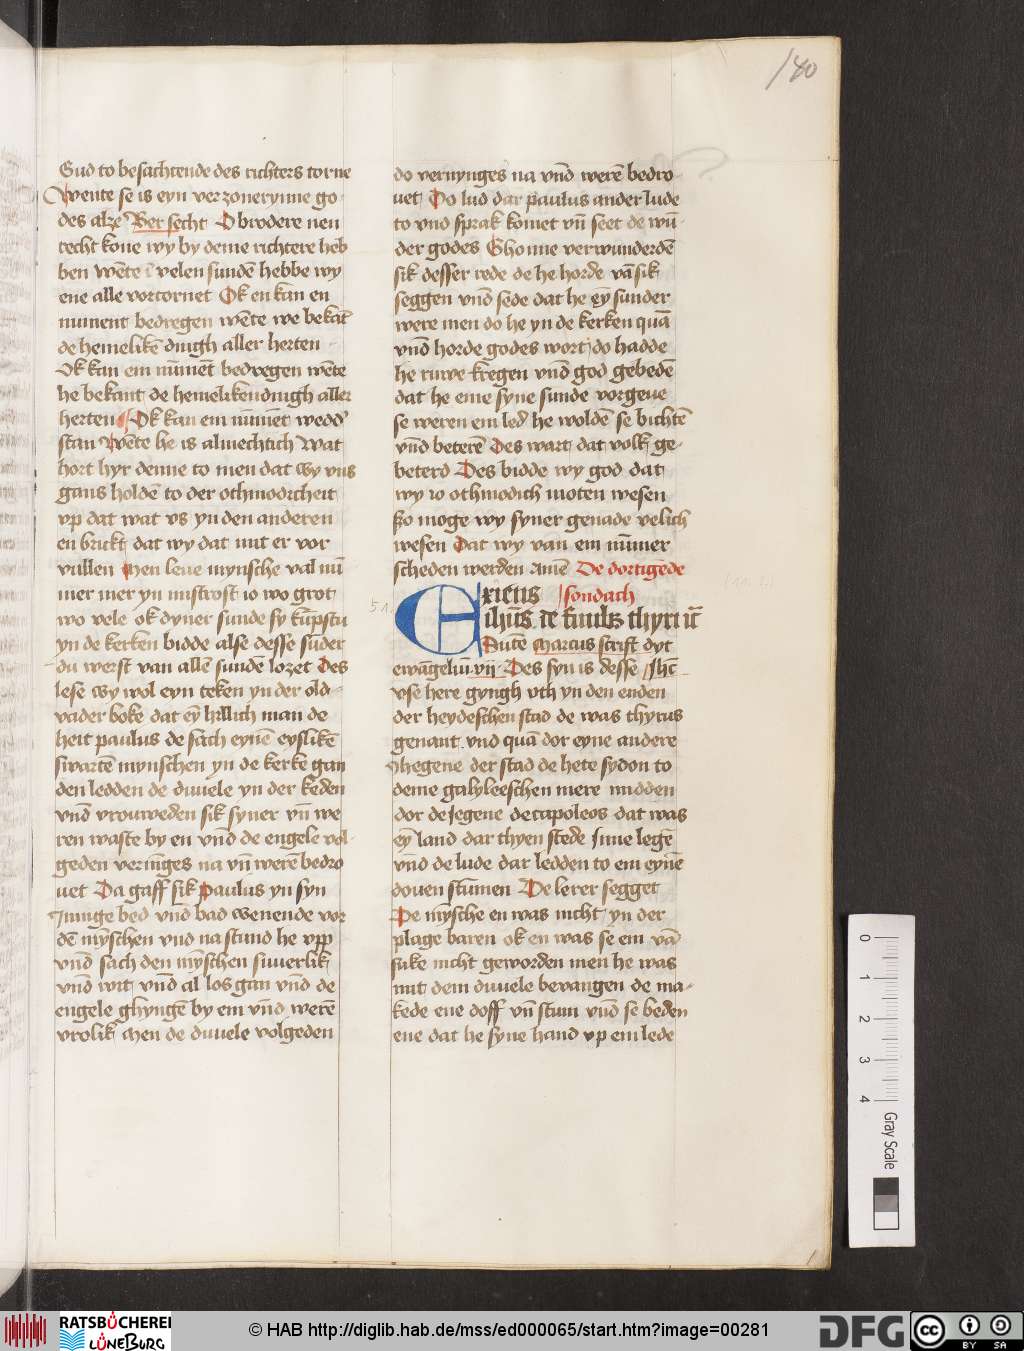 140
Gud to besachtende des richters torne
Wente se is eyn verzonerynne go
des alze Ber secht O brodere nen
recht kone wy by deme richtere heb
ben wēte velen sundē hebbe wy
ene alle vortornet Ok en kan en
nument bedregen wēte we bekāt
de hemelikē dingh aller herten
Ok kan em nūmēt bedregen wēte
he bekant de hemelikendingh aller
herten Ok kan em nūmēt wedd
stan Wēte he is almechtich Wat
hort hyr denne to men dat wy vns
gans holdē to der othmodicheit
vp dat wat vs yn den anderen
en brickt dat wy dat mit er vor
vullen Men leue mynsche val nū
mer mer yn mistrost io wo grot
wo vele ok dyner sunde sy kūpstu
yn de kerken bidde alse desse sūder
du werst van allē sundē lozet Des
lese wy wol eyn teken yn der old
vader boke dat eȳ hillich man de
heit paulus de sach eynē eyslikē
swartē mynschen yn de kerke gan
den ledden de duuele yn der keden
vnd vrouweden sik syner vn we
ren waste by en vnd de engele vol
geden verīnges na vn werē bedro
uet Da gaff sik paulus yn syn
Innige bed vnd bad wenende vor
dē mȳschen vnd na stund he vpp
vnd sach den myschen suuerlik
vnd wit vnd al los gan vnd de
engele ghyngē by em vnd werē
vrolik Men de duuele volgeden
do vernynges na vnd werē bedro
uet Do lud dar paulus ander lude
to vnd sprak komet vn seet de wū
der godes Ghonne verwunderdē
sik desser rede de he horde vā sik
seggen vnd sede dat he eȳ sunder
were men do he yn de kerken quā
vnd horde godes wort do hadde
he ruwe kregen vnd god gebedē
dat he eme syne sunde vorgeue
se weren em led he woldē se bichtē
vnd beterē Des wart dat volk ge
beterd Des bidde wy god dat
wy io othmodich moten wesen
so moge wy syner genade velich
wesen Dat wy van em nūmer
scheden werden amē De dortigede
sondach
51.
Exiens
ihūs de finibz thyri
Sūte Marcus scrift dyt
ewāgeliū vij Des syn is desse Jhc
vse here gyngh vth yn den enden
der heydeschen stad de was thyrus
genant vnd quā dor eyne andere
Jhegene der stad de hete sydon to
deme galyleeschen mere midden
dor de Jegene decapoleos dat was
eȳ land dar thyen stede Inne legē
vnd de lude dar ledden to em eynē
douen stūmen De lerer segget
De mȳsche en was nicht yn der
plage baren ok en was se em vā
suke nicht geworden men he was
mit dem duuele bevangen de ma
kede ene doff vn stum vnd se beden
ene dat he syne hand vp em lede
0
1
2
3
4
Gray Scale
RATSBÜCHEREI
LÜNEBURG
© HAB http://diglib.hab.de/mss/ed000065/start.htm?image=00281
DFG
cc
BY SA